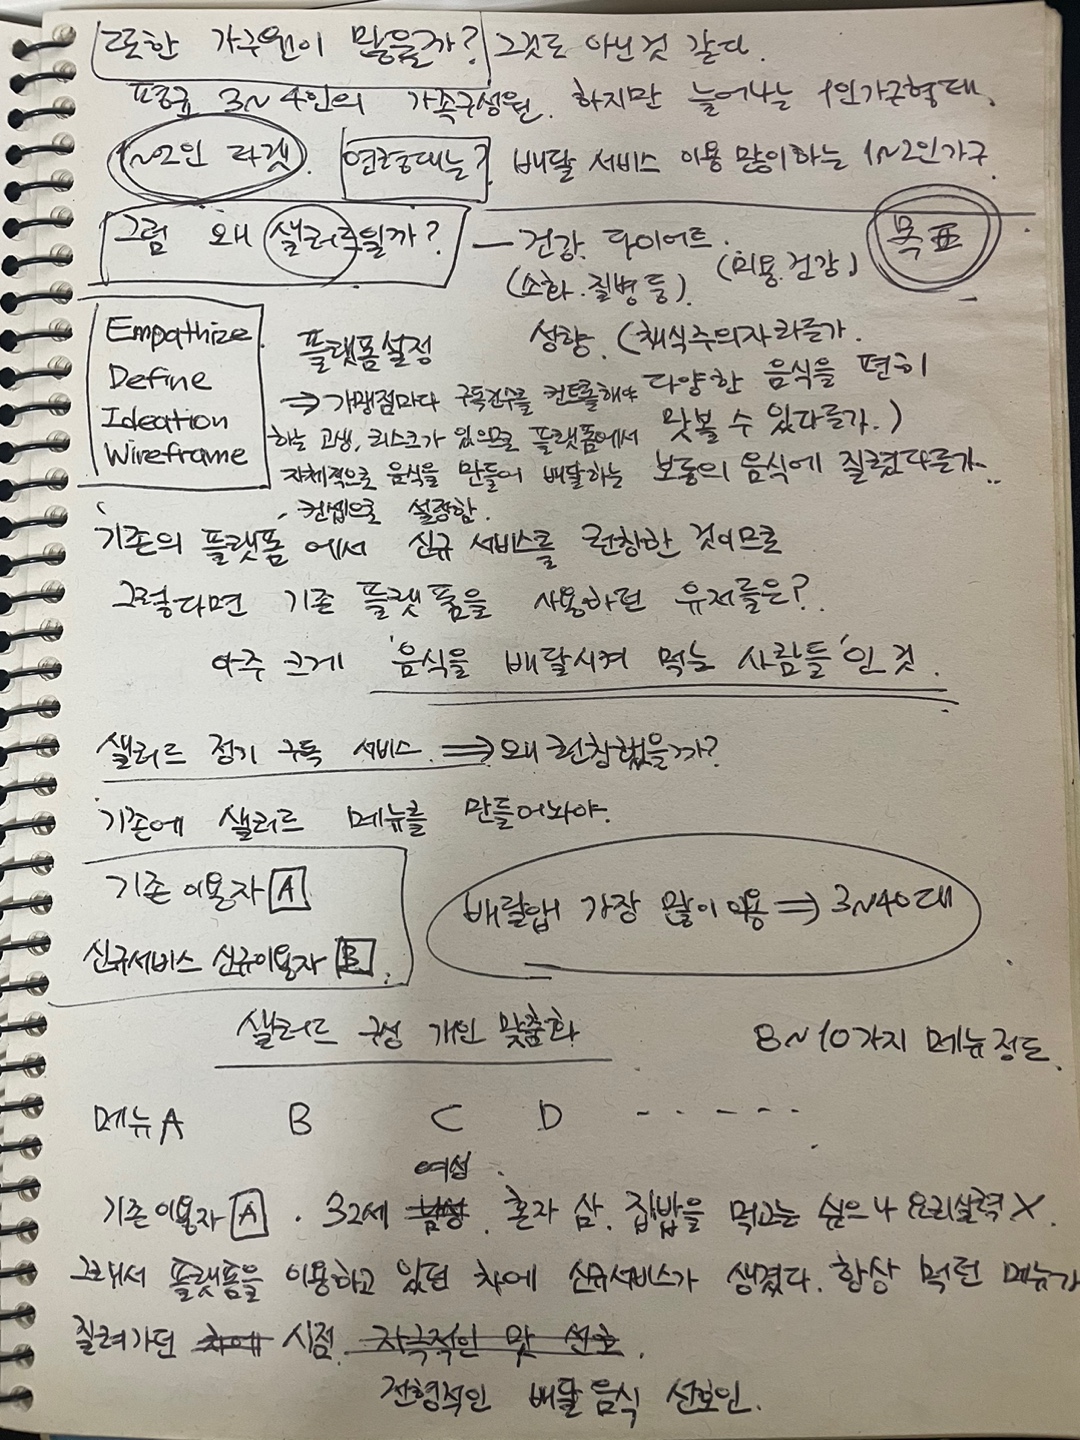 또한 가구원이 많을까? 그것도 아닌것 같다.
평균 3~4인의 가족구성원. 하지만 늘어나는 1인가구형태.
1~2인 타겟. 연령대는? 배달 서비스 이용 많이하는 1~2인가구
그럼 왜 샐러드일까? — 건강. 다이어트. (미용.건강)
(소화.질병 등).
목표
Empathize.
Define
Ideation
Wireframe
플랫폼설정
⇒ 가맹점마다 구독건수를 컨트롤해야
하는 고생, 리스크가 있으므로 플랫폼에서
자체적으로 음식을 만들어 배달하는
컨셉으로 설정함.
성향. (채식주의자라든가.
다양한 음식을 편히
맛볼 수 있다든가.)
보통의 음식에 질렸다든가..
기존의 플랫폼에서 신규 서비스를 런칭한 것이므로
그렇다면 기존 플랫폼을 사용하던 유저들은?
아주 크게 '음식을 배달시켜 먹는 사람들'인 것.
샐러드 정기 구독 서비스. ⇒ 왜 런칭했을까?
기존에 샐러드 메뉴를 만들어놔야.
기존 이용자 A
신규서비스 신규이용자 B.
배달앱 가장 많이 이용 ⇒ 3~40대
샐러드 구성 개인 맞춤화
8~10가지 메뉴 정도.
메뉴 A B C D - - - - - -
여성
기존 이용자 A . 32세 남성. 혼자 삼. 집밥을 먹고는 싶으나 요리실력 X.
그래서 플랫폼을 이용하고 있던 차에 신규서비스가 생겼다. 항상 먹던 메뉴가
질려가던 차에 시점. 자극적인 맛 선호.
전형적인 배달 음식 선호인.